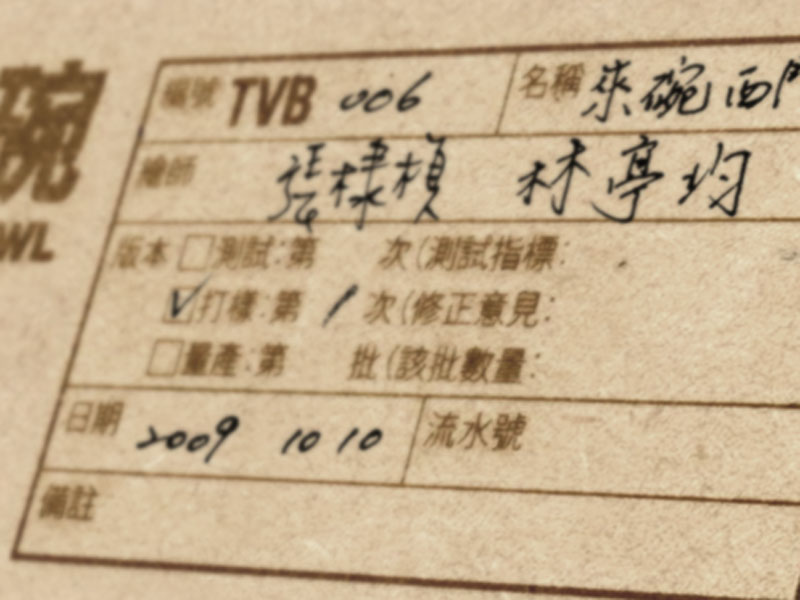 碗
WL
編號 TVB 006 名稱 來碗西門
繪師 張棣楨 林亭均
版本 □測試:第 次(測試指標:
☑打樣:第 1 次(修正意見:
□量產:第 批(該批數量:
日期 2009 10 10 流水號
備註